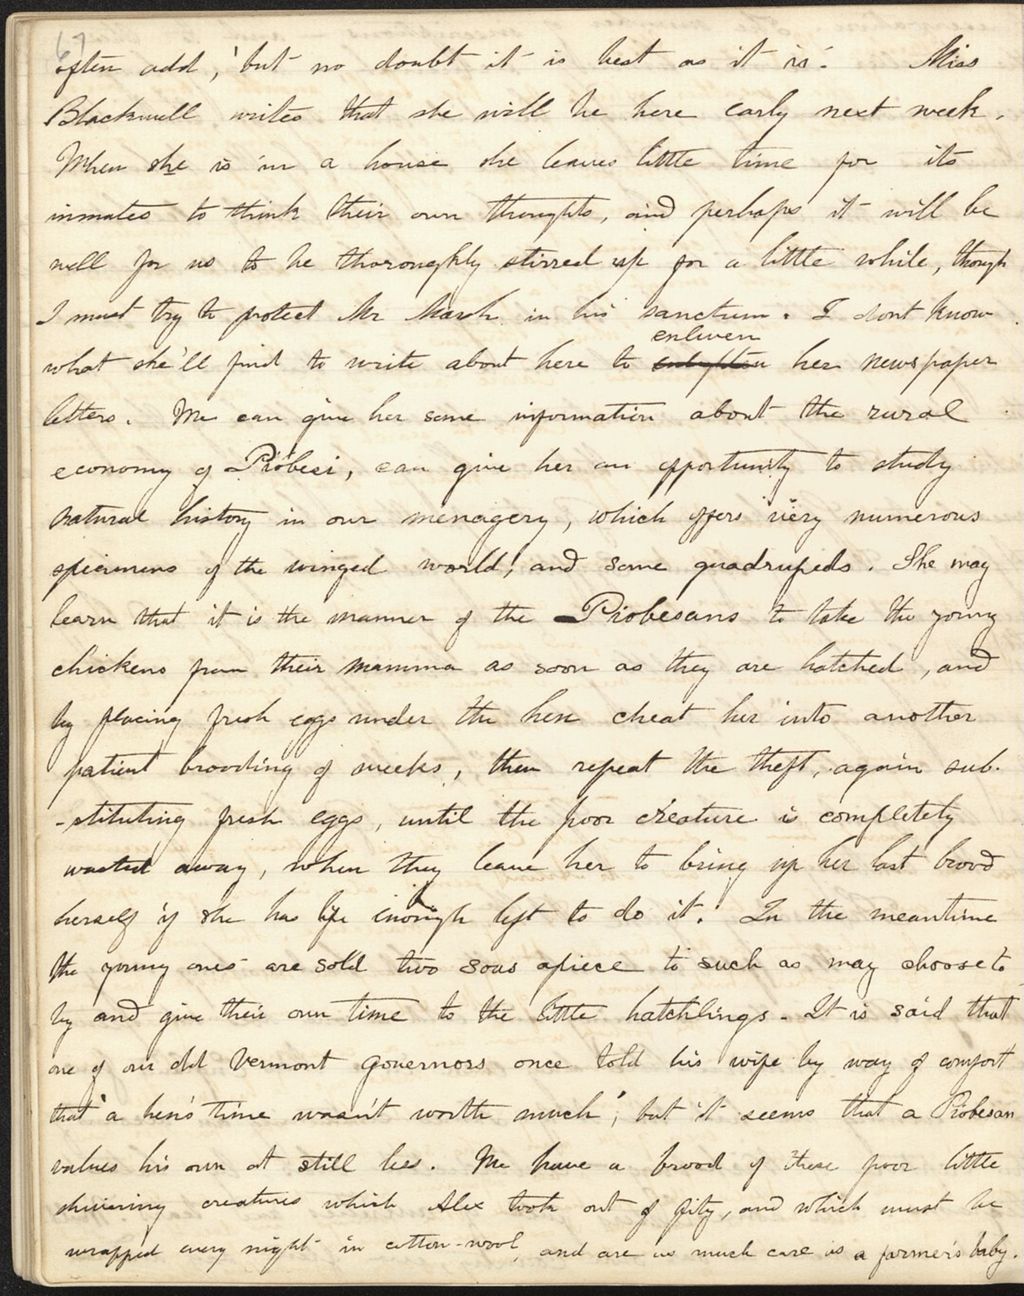 67
often add, 'but no doubt it is best as it is'. Miss
Blackwell writes that she will be here early next week.
When she is in a house she leaves little time for its
inmates to think their own thoughts, and perhaps it will be
well for us to be thoroughly stirred up for a little while, though
I must try to protect Mr Marsh in his sanctum. I dont know
what she'll find to write about here to enliven her newspaper
letters. We can give her some information about the rural
economy of Piòbesi, can give her an opportunity to study
natural history in our menagery, which offers very numerous
specimens of the winged world, and some quadrupeds. She may
learn that it is the manner of the Piobesans to take the young
chickens from their mamma as soon as they are hatched, and
by placing fresh eggs under the hen cheat her into another
patient brooding of weeks, then repeat the theft, again sub-
-stituting fresh eggs, until the poor creature is completely
wasted away, when they leave her to bring up her last brood
herself if she has life enough left to do it. In the meantime
the young ones are sold two sous apiece to such as may choose to
by and give their own time to the little hatchlings. It is said that
one of our old Vermont governors once told his wife by way of comfort
that 'a hen's time wasn't worth much', but it seems that a Piobesan
values his own at still less. We have a brood of these poor little
shivering creatures which Alex took out of pity, and which must be
wrapped every night in cotton-wool, and are as much care as a farmer's baby.